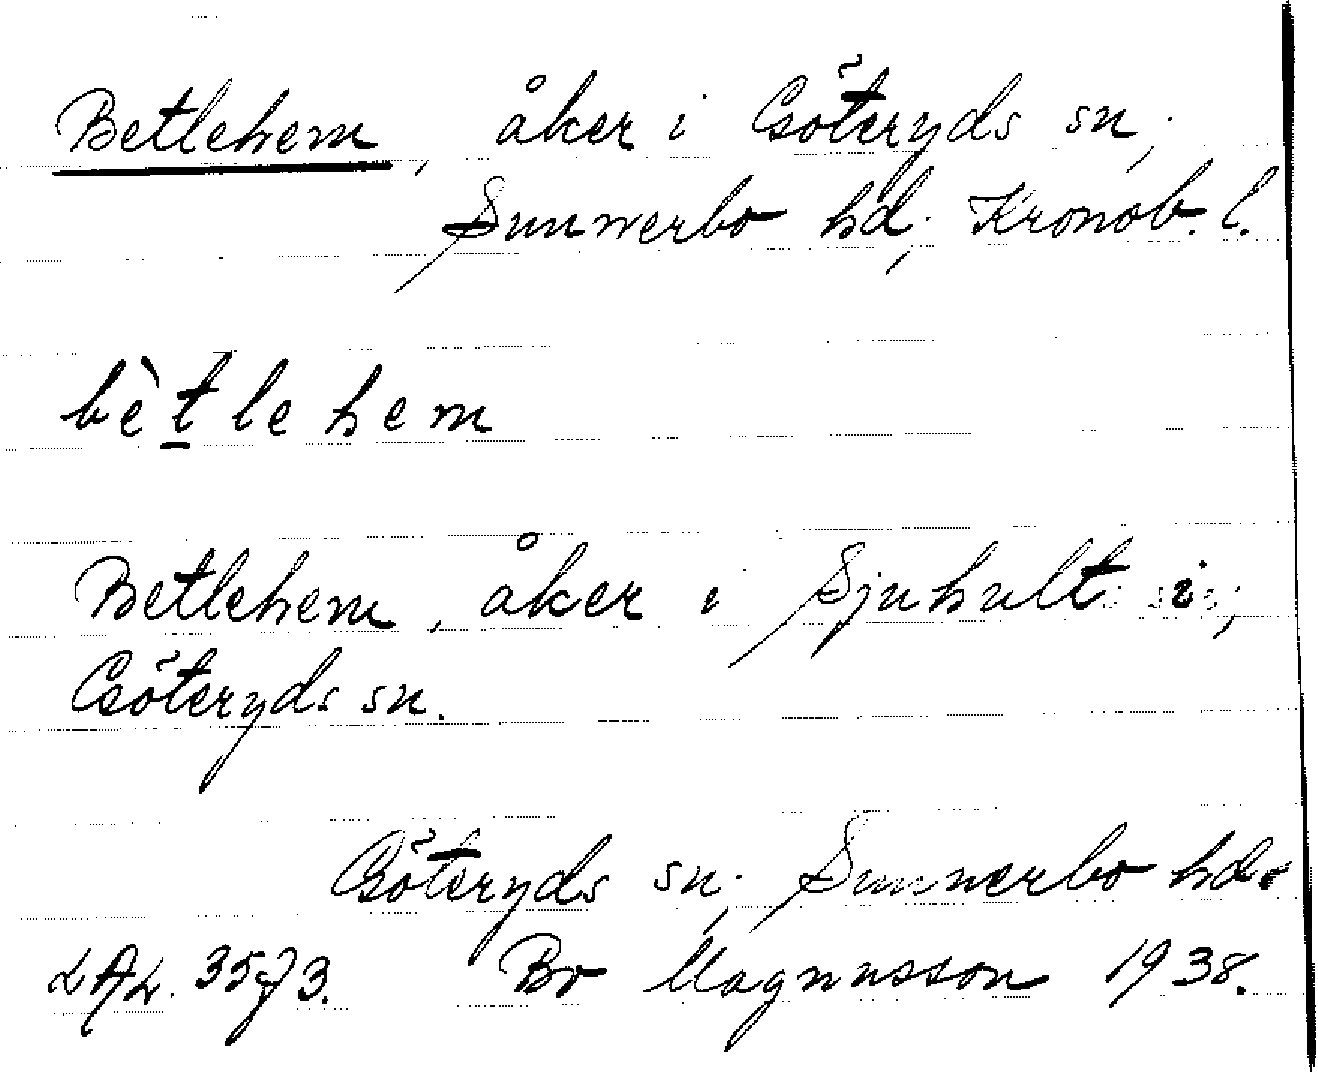 Betlehem, åker i Göteryds sn,
Sunnerbo hd, Kronob. l.
bètlehem
Betlehem, åker i Sjuhult i,
Göteryds sn.
Göteryds sn, Sunnerbo hd.
LAL. 3573. Bo Magnusson 1938.